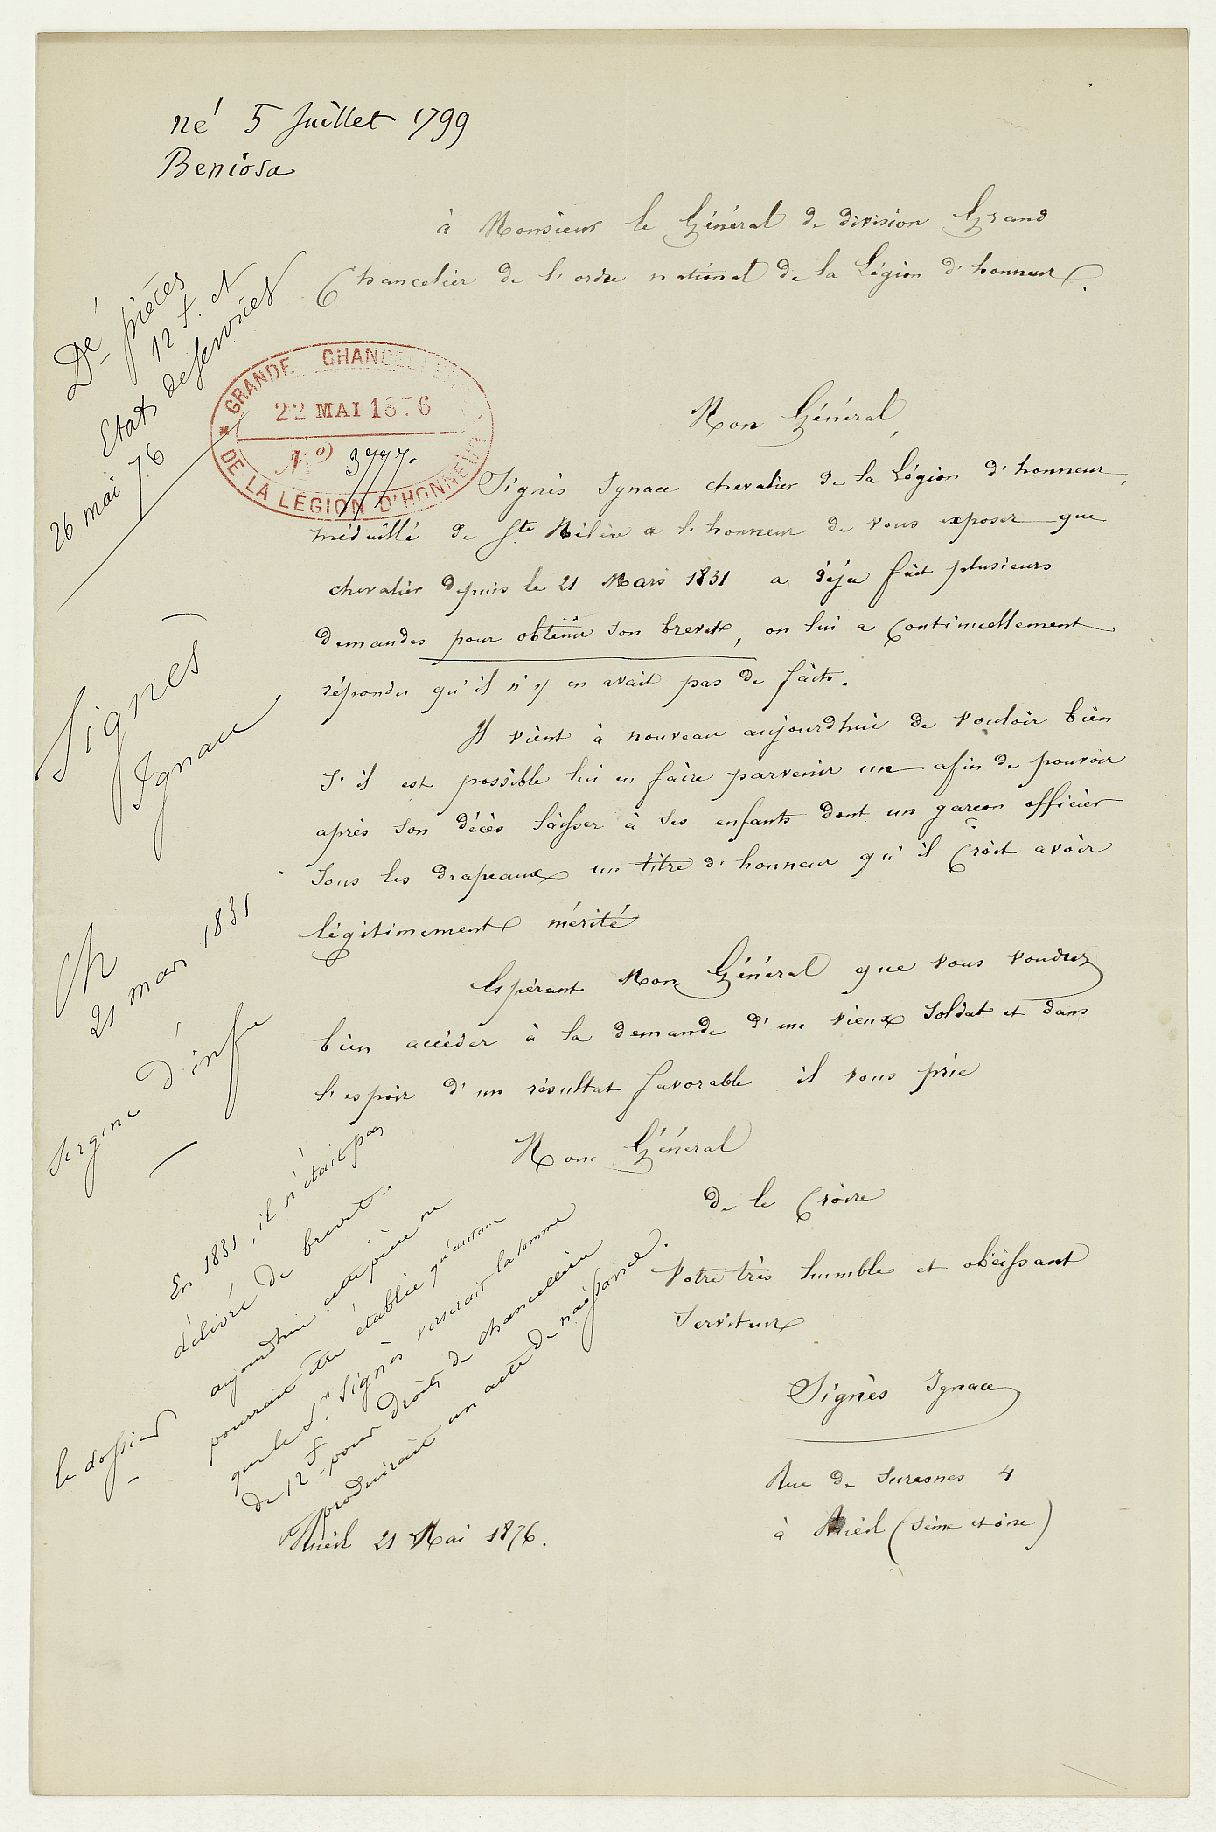 né 5 Juillet 1799
Beniosa
à Monsieur le Général de division Grand
Chancelier de l'ordre national de la Légion d'honneur.
Dé pièces
12 f. et
Etats de services
26 mai 76
GRANDE CHANCELLERIE
22 MAI 1876
No 3777.
DE LA LÉGION D'HONNEUR
Mon Général,
Signès Ignace chevalier de la Légion d'honneur,
médaillé de Ste Hélène a l'honneur de vous exposer que
chevalier depuis le 21 Mars 1831 a déja fait plusieurs
demandes pour obtenir son brevet, on lui a continuellement
répondu qu'il n'y en avait pas de faits.
Il vient à nouveau aujourdhui de vouloir bien
s'il est possible lui en faire parvenir une afin de pouvoir
après son décès laisser à ses enfants dont un garçon officier
sous les drapeaux un titre d'honneur qu'il croit avoir
légitimement mérité
Espérant Mon Général que vous voudrez
bien accéder à la demande d'un vieux soldat et dans
l'espoir d'un résultat favorable il vous prie
Mon Général
de le croire
Votre très humble et obéissant
Serviteur
Signès Ignace
Rue de Suresnes 4
à Rueil (Seine et oise)
Rueil 21 Mai 1876.
Signès
Ignace
Ch
21 mars 1831
Sergent d'infie
En 1831, il n'était pas
délivré de brevet.
aujourd'hui cette pièce ne
pourrait être établie qu'autant
que le Sr. Signès verserait la somme
de 12 f. pour droits de chancellerie
& produirait un acte de naissance.
le dossier